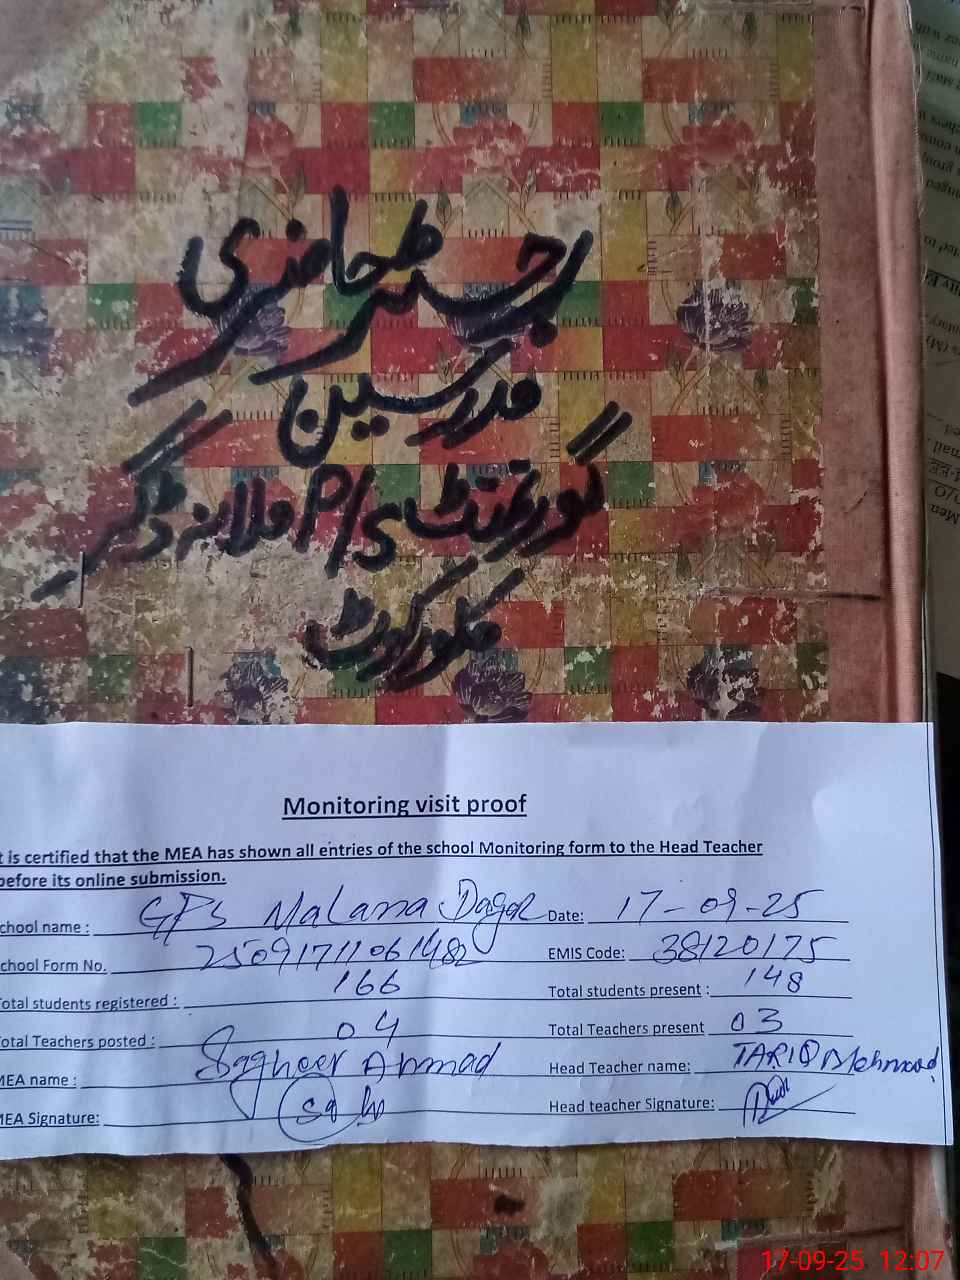 رجسٹر حاضری
مدرسین
گورنمنٹ P/S ملانہ ڈگر
کوٹ
Monitoring visit proof
t is certified that the MEA has shown all entries of the school Monitoring form to the Head Teacher
before its online submission.
chool name : GPS Malana Dagar Date: 17-09-25
chool Form No. 25091711061482 EMIS Code: 38120175
Total students registered : 166 Total students present : 148
Total Teachers posted : 04 Total Teachers present 03
MEA name : Sagheer Ahmad Head Teacher name: TARIQ Mehmood
MEA Signature: Head teacher Signature:
17-09-25 12:07